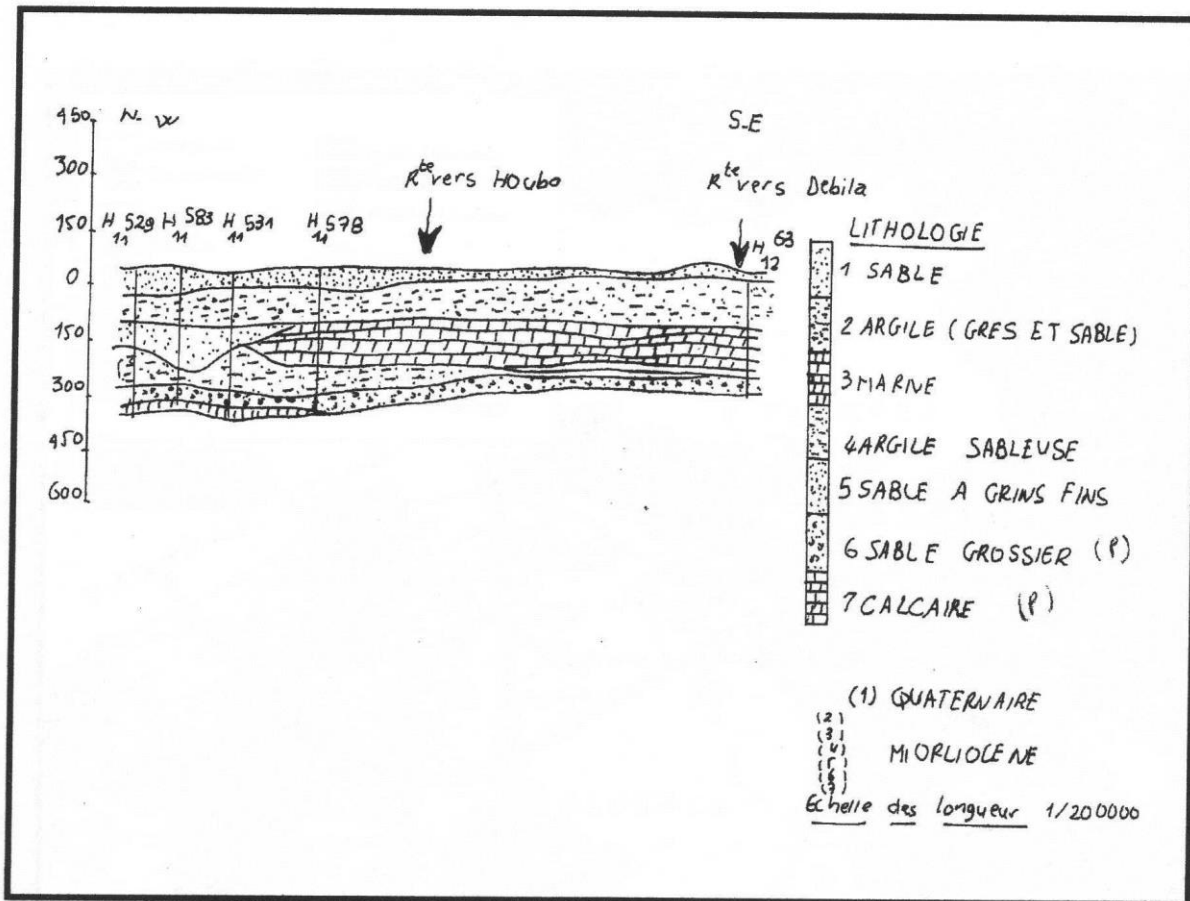 450
N-W
S-E
300
Rte vers Houbo
Rte vers Debila
150
H 529
11
H 583
11
H 531
11
H 578
11
H 63
12
0
150
300
450
600
LITHOLOGIE
1 SABLE
2 ARGILE (GRES ET SABLE)
3 MARNE
4 ARGILE SABLEUSE
5 SABLE A GRINS FINS
6 SABLE GROSSIER (P)
7 CALCAIRE (P)
(1) QUATERNAIRE
(2)
(3)
(4)
(5)
(6)
(7)
MIORLIOCENE
Echelle des longueur 1/200000